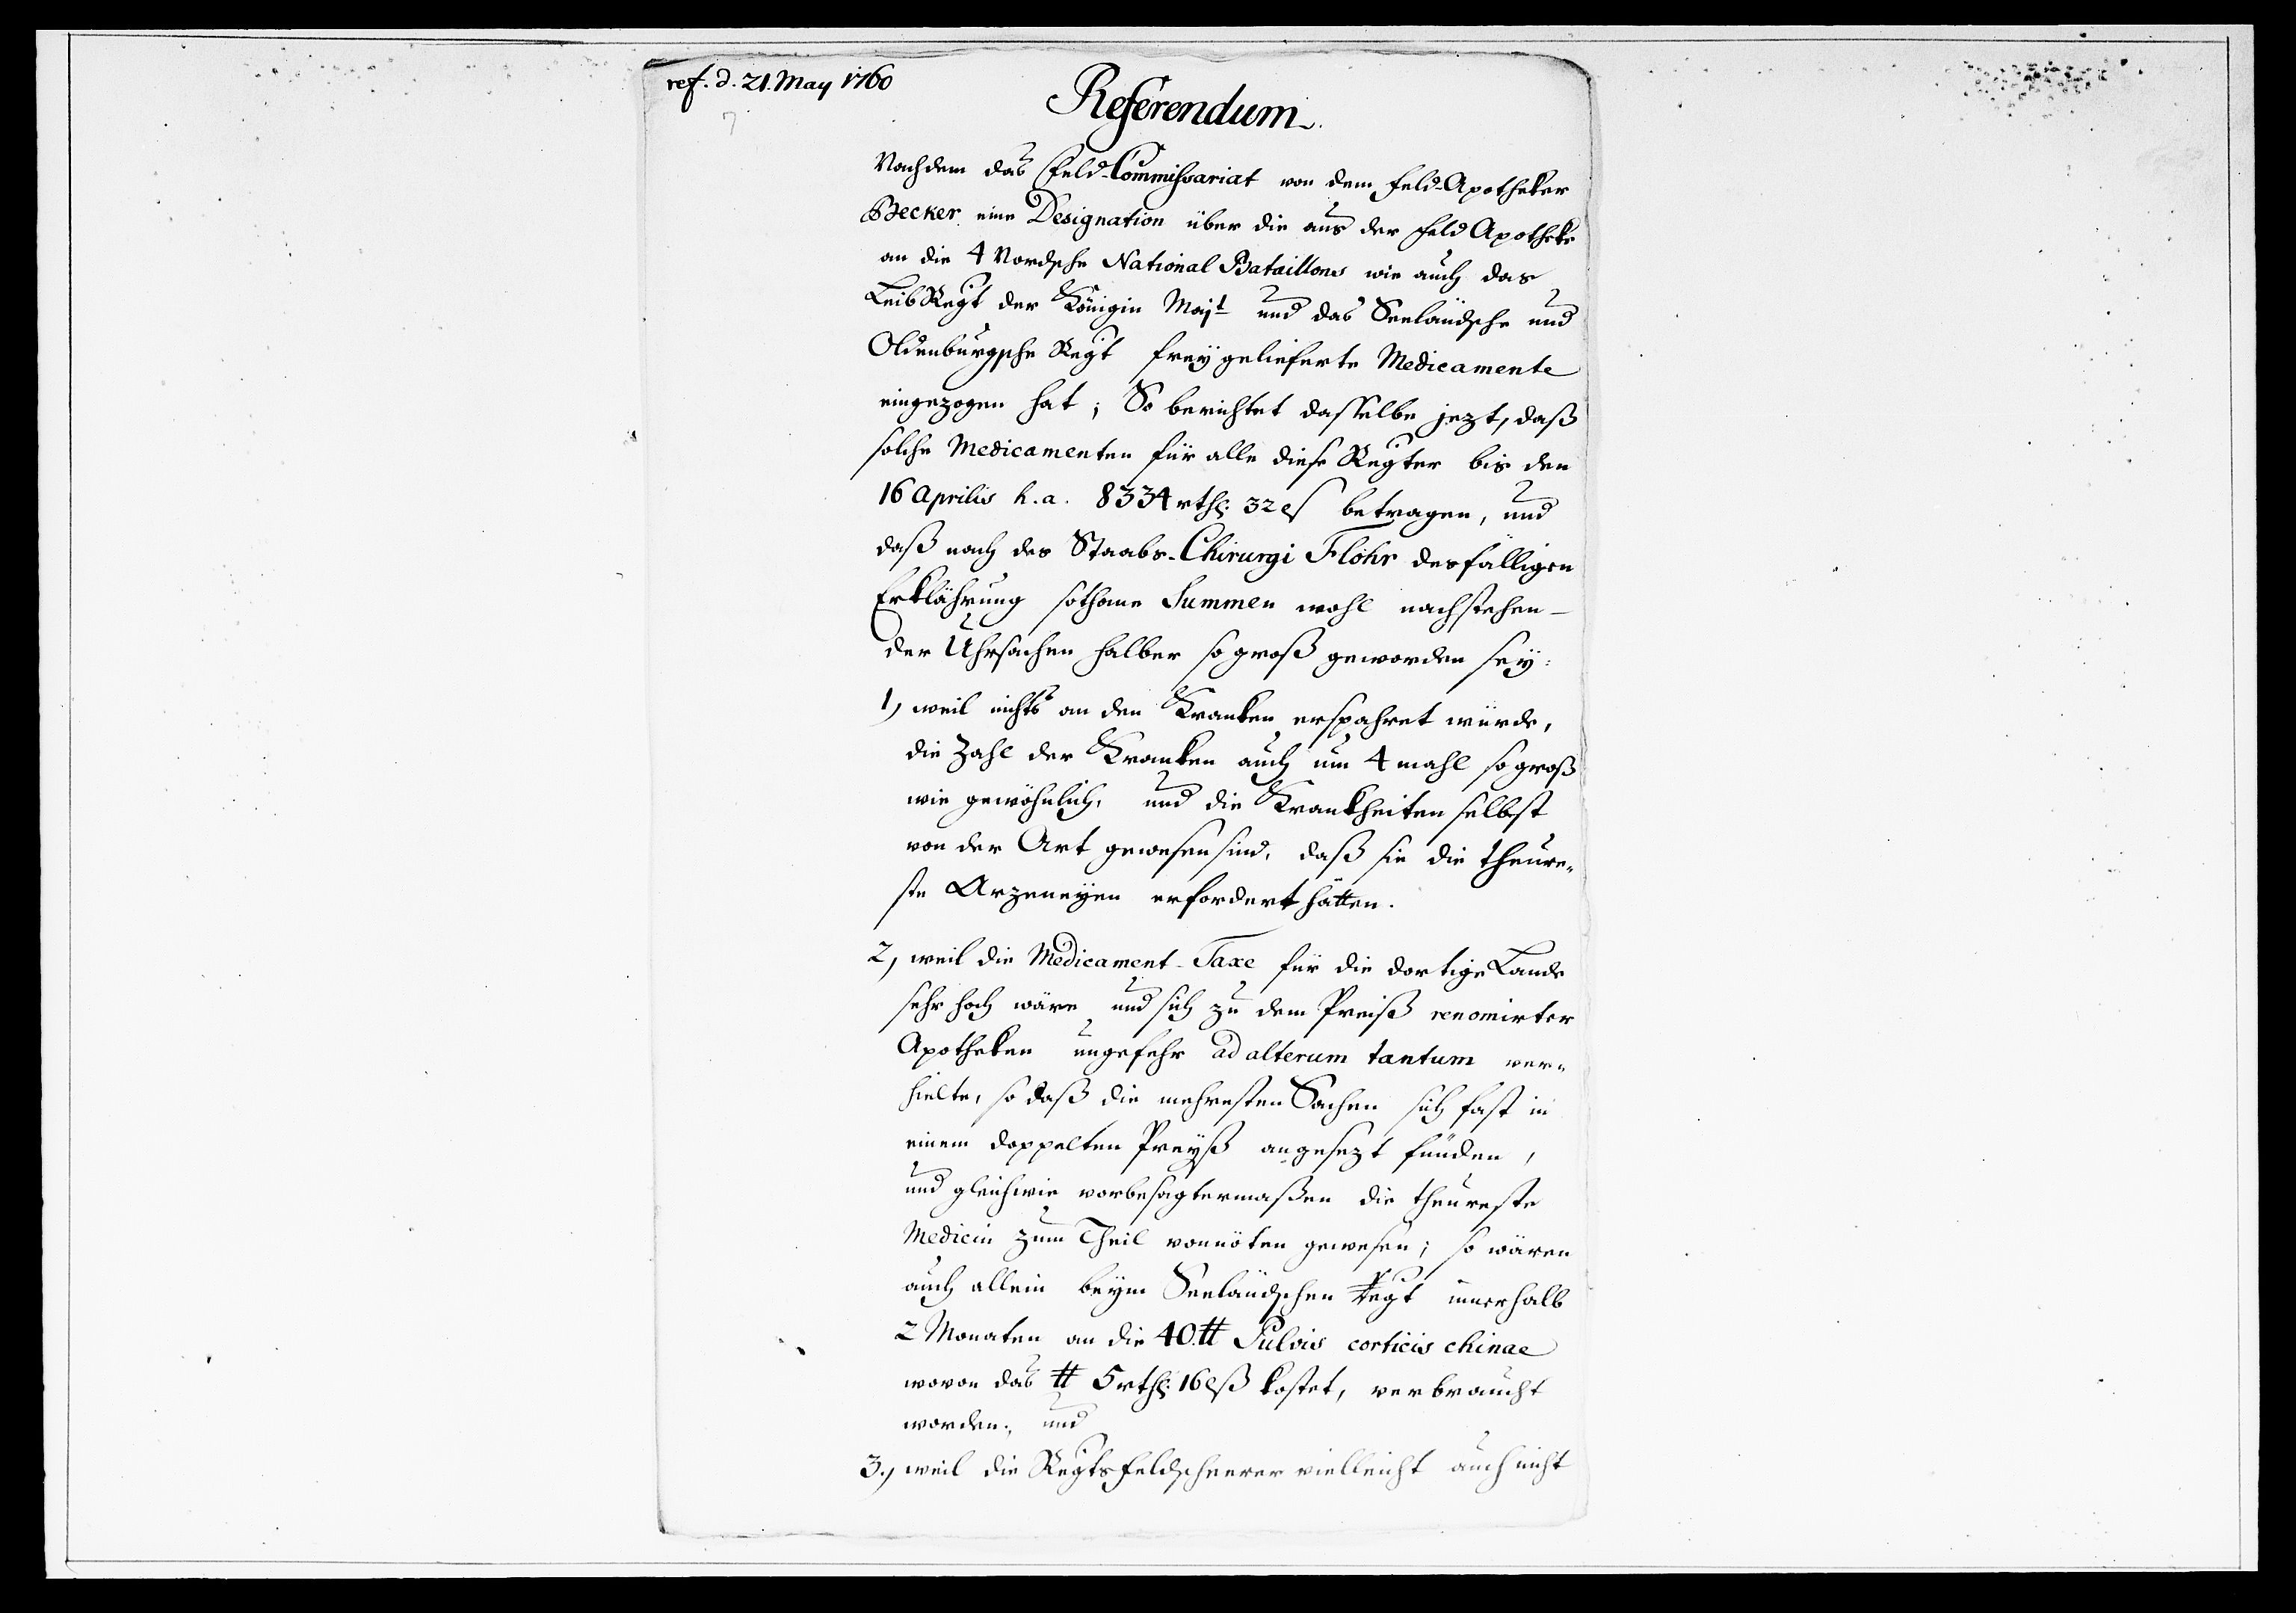 ref. d. 21. May 1760
7
Referendum
Nachdem das Feld-Commissariat von dem Feld-Apotheker
Becker eine Designation über die aus der Feld Apotheke
an die 4 Nordsche National Bataillons wie auch das
LeibRegt der Königin Majt und das Seeländsche und
Oldenburgsche Regt frey gelieferte Medicamente
eingezogen hat; So berichtet dasselbe jezt, daß
solche Medicamenten für alle diese Regter bis den
16 Aprilis h. a. 8334 rthl: 32 ß betragen, und
daß nach des Staabs-Chirurgi Flohr desfälligen
Erklährung sothane Summen wohl nachstehen-
der Uhrsachen halber so groß geworden sey:
1, weil nichts an den Kranken erspahret würde,
die Zahl der Kranken auch um 4 mahl so groß
wie gewöhnlich, und die Krankheiten selbst
von der Art gewesen sind, daß sie die theure-
ste Arzeneyen erfordert hätten.
2, weil die Medicament-Taxe für die dortige Lande
sehr hoch wäre und sich zu dem Preiß renomirter
Apotheken ungefehr ad alterum tantum ver-
hielte, so daß die mehresten Sachen sich fast in
einem doppelten Preyß angesezt fünden,
und gleichwie vorbesagtermaßen die theureste
Medicin zum Theil vonnöten gewesen; so wären
auch allein beym Seeländschen Regt innerhalb
2 Monaten an die 40 ℔ Pulvis corticis chinae
wovon das ℔ 5 rthl: 16 ß kostet, verbraucht
worden; und
3., weil die Regts feldscheerer vielleicht auch nicht